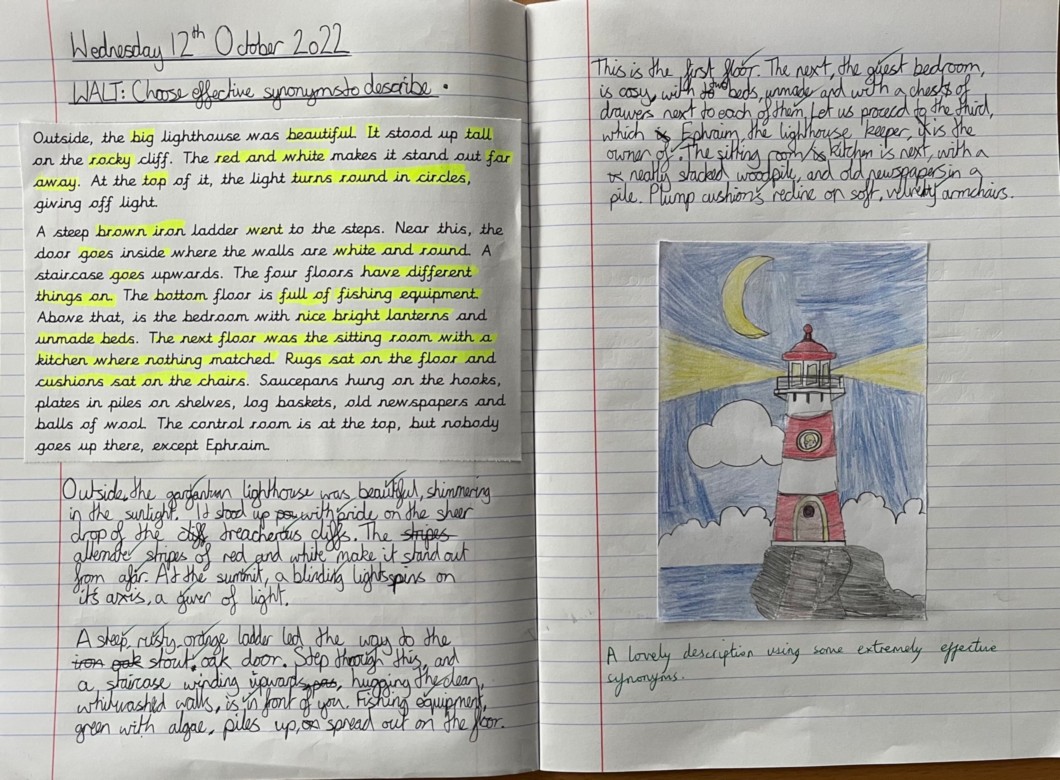 Wednesday 12th October 2022
WALT: Choose effective synonyms to describe.
Outside, the big lighthouse was beautiful. It stood up tall
on the rocky cliff. The red and white makes it stand out far
away. At the top of it, the light turns round in circles,
giving off light.
A steep brown iron ladder went to the steps. Near this, the
door goes inside where the walls are white and round. A
staircase goes upwards. The four floors have different
things on. The bottom floor is full of fishing equipment.
Above that, is the bedroom with nice bright lanterns and
unmade beds. The next floor was the sitting room with a
kitchen where nothing matched. Rugs sat on the floor and
cushions sat on the chairs. Saucepans hung on the hooks,
plates in piles on shelves, log baskets, old newspapers and
balls of wool. The control room is at the top, but nobody
goes up there, except Ephraim.
Outside, the gargantuan lighthouse was beautiful, shimmering
in the sunlight. It stood up with pride on the sheer
drop of the cliff treacherous cliffs. The stripes
alternate stripes of red and white make it stand out
from afar. At the summit, a blinding light spins on
its axis, a giver of light.
A steep, rusty orange ladder led the way to the
iron oak stout, oak door. Step through this, and
a staircase winding upwards, hugging the clean,
whitwashed walls, is in front of you. Fishing equipment,
green with algae, piles up, spread out on the floor.
This is the first floor. The next, the guest bedroom,
is cosy, with two beds, unmade and with a chests of
drawers next to each of them. Let us proceed to the third,
which is Ephraim, the lighthouse keeper, is the
owner of. The sitting room/kitchen is next, with a
neatly stacked woodpile, and old newspapers in a
pile. Plump cushions recline on soft, velvety armchairs.
A lovely description using some extremely effective
synonyms.